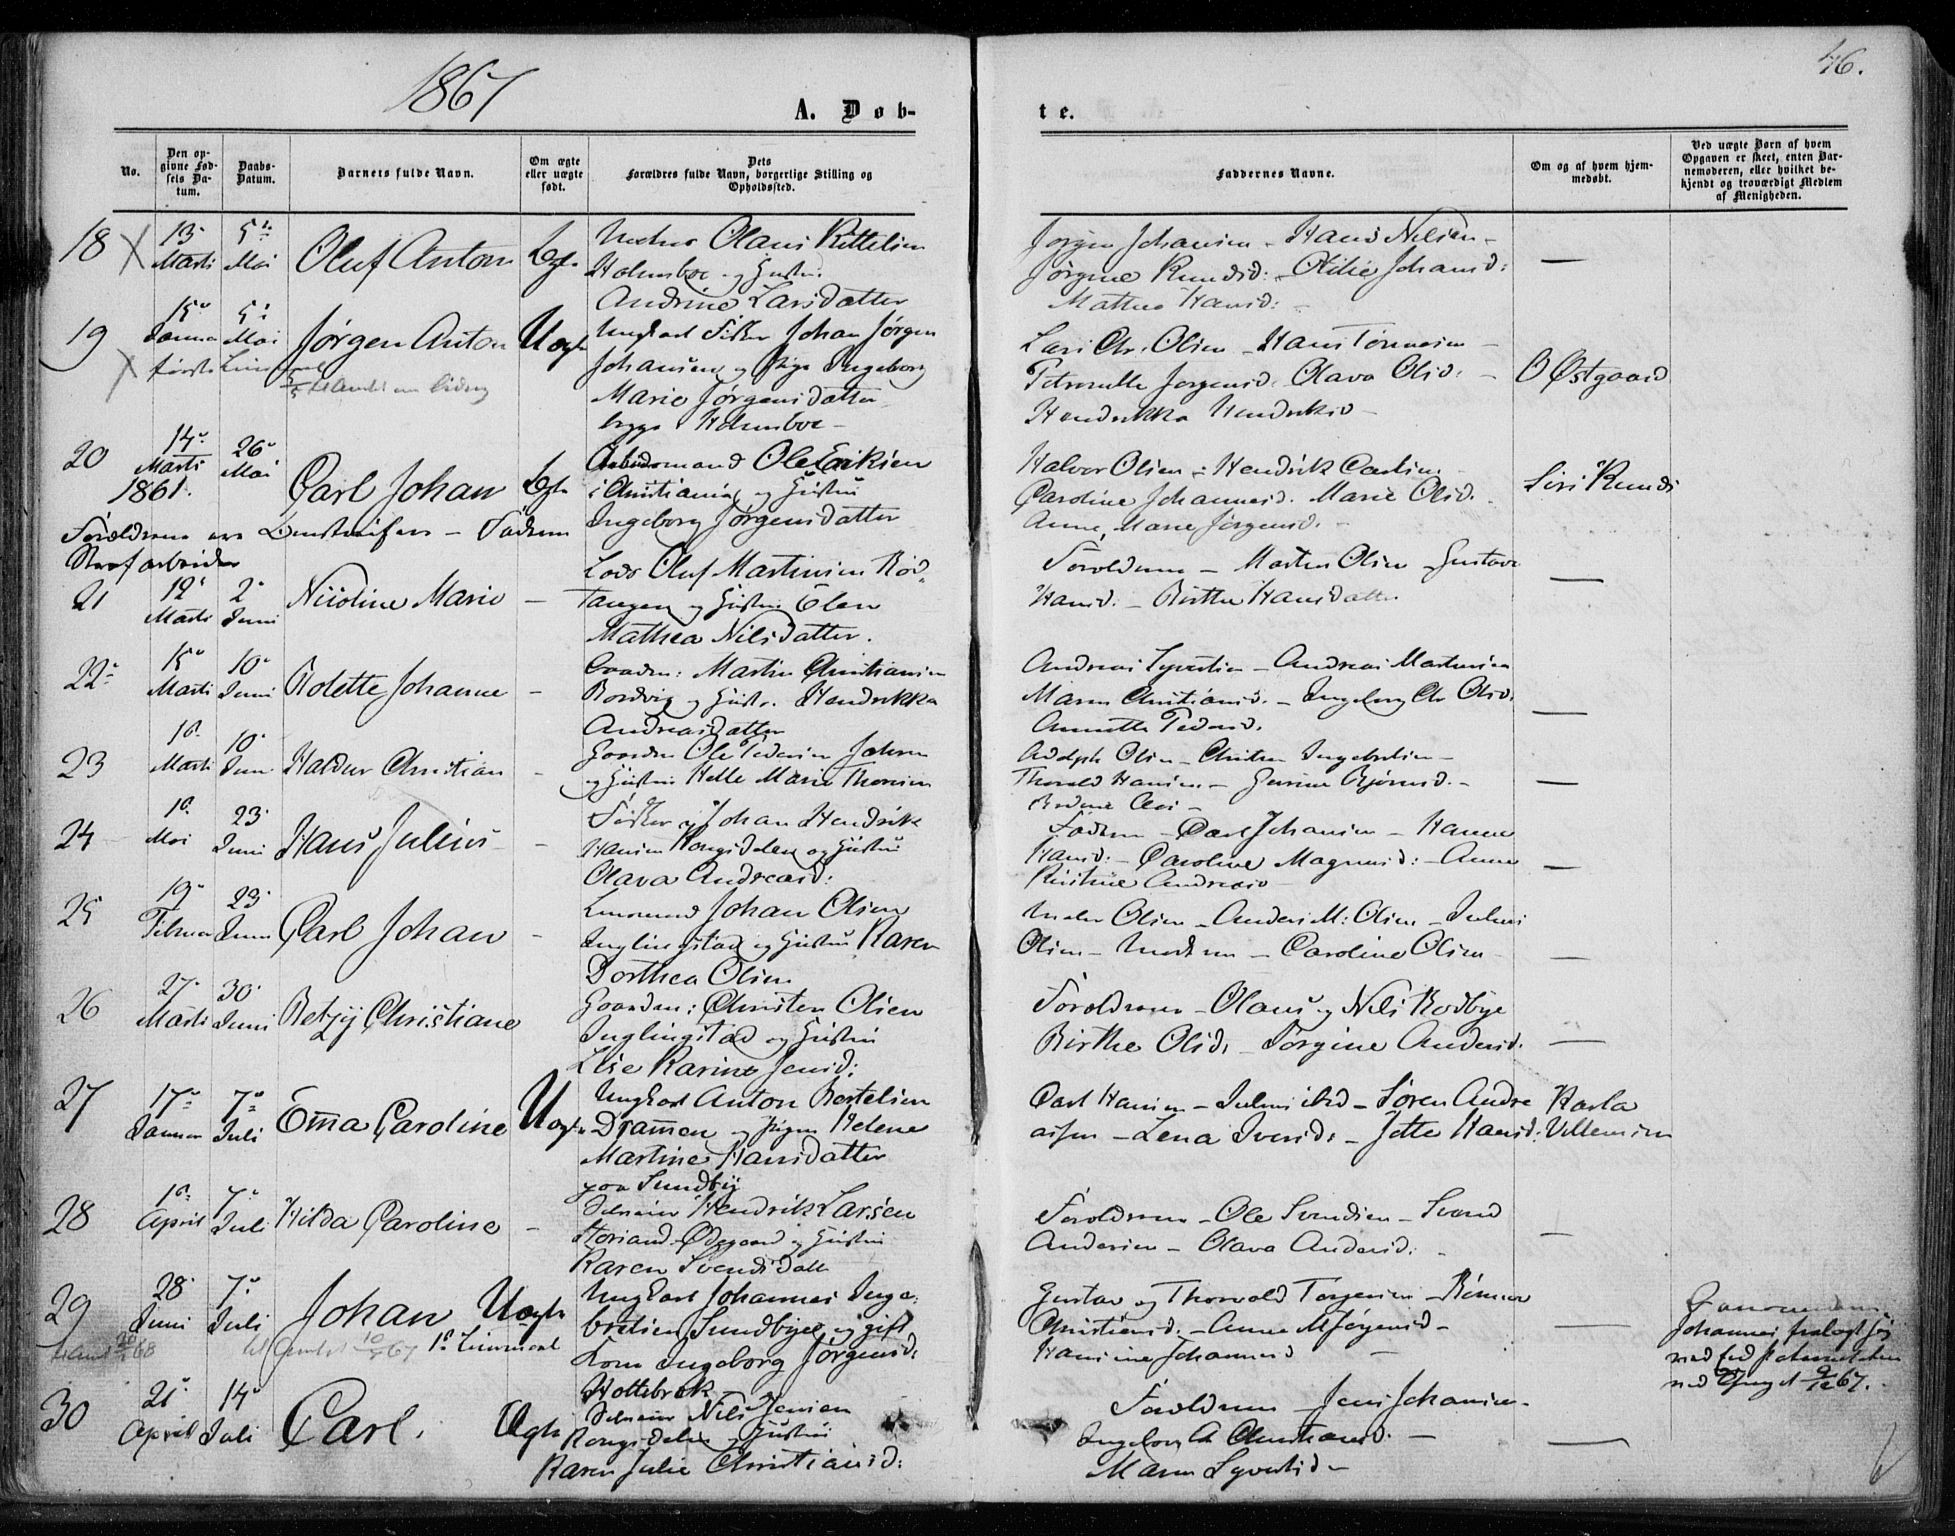 1867
46.
A. Døb-
te.
No.
Den op-
givne Fød-
sels Da-
tum.
Daabs-
Datum.
Barnets fulde Navn.
Om ægte
eller uægte
født.
Dets
Forældres fulde Navn, borgerlige Stilling og
Opholdssted.
Faddernes Navne.
Om og af hvem hjem-
medøbt.
Ved uægte Børn af hvem
Opgaven er skeet, enten Bar-
nemoderen, eller hvilket be-
kjendt og troværdigt Medlem
af Menigheden.
18 13 Marti 5 Mai Oluf Anton Olaus Kittelsen
Holmsboe og Hustru
Andrine Larsdatter
Jørgen Johansen - Hans Nilsen -
Jørgine Knudsd: - Otilie Johansd:
Mathea Hansd: -
19 15 Januar 5 Mai Jørgen Anton Uægte Ungkarl Fisker Johan Jørgen
Johansen og Pige Ingeborg
Marie Jørgensdatter
begge Holmsboe -
Lars Chr. Olsen - Hans
Petronelle Jørgensd. Olava Olsd. -
Hendrikka Hendriksd -
O Østgaard
20 14 Marti 1861. 26 Mai Carl Johan Ægte Arbeidsmand Ole Eriksen
i Christiania og Hustru
Ingeborg Jørgensdatter
Forældrene ere - Faderen
Strafarbeider
Halvor Olsen - Hendrik
Caroline Johannesd. Marie Olsd.
Anne Marie Jørgensd. -
Siri Knuds
21 12 Marti 2 Juni Nicoline Marie - Lods Oluf Martinsen Rød-
tangen og Hustru Elen
Mathea Nilsdatter.
Forældrene - Morten Olsen - Gustava
Hansd. - Birthe Hansdatter
22 15 Marti 10 Juni Bolette Johanne - Gaardm: Martin Christiansen
Hustr. Hendrikka
Andreasdatter
Andreas Syvertsen - Andreas Martinsen
Maren Christiansd. - Ingeborg Chr Olsd.
Annette Pedersd.
23 10 Marti 10 Juni Christian - Gaardm Ole Pedersen
og Hustru Helle Marie Thoresen
Adolph Olsen - Christen Ingebretsen -
Thorvald Hansen - Bjørnsd. -
24 10 Mai 23 Juni Hans Julius - Fisker Johan Hendrik
Hansen Kongsdelen og Hustru
Olava Andreasd:
Faderen - Carl Johansen - Hanna
Hansd: - Caroline Magnusd: - Anne
Kristine Andreasd -
25 19 Februar 23 Juni Carl Johan - Johan Olsen
Inglingstad og Hustru Karen
Dorthea Olsen
Olsen - Anders M: Olsen - Julius
Olsen - Moderen - Caroline Olsen -
26 27 Marti 30 Juni Betzij Christiane Gaardm: Christen Olsen
Inglingstad og Hustru
Lise Karine Jensd:
Forældrene - Olaus og Nils Rodbye
Birthe Olsd. - Jørgine Andersd.
27 17 Januar 7 Juli Em̄a Caroline Uægte Ungkarl Anton Bertelsen
Dram̄en og Pigen Helene
Martine Hansdatter
paa Sundbij
Carl Hansen - Julius ibid - Søren Andre
asen - Lena Iversd: - Jette Hansd:
Karla
28 10 April 7 Juli Hilda Caroline - Selveier Hendrik Larsen
Storsand Ødegaard og Hustru
Karen Svendsdatt
Forældrene - Ole Svendsen - Svend
Andersen - Olava Andersd: -
29 28 Juni 7 Juli Johan Uægte Ungkarl Johannes Inge-
bretsen Sundbye og gift
Kone Ingeborg Jørgensd:
Holtebræk
Gustav og Thorvald Torgersen -
Christensd. - Anne M Jørgensd -
Hansine Johannesd -
Johannes fralagt sig
med
2/12 67.
30 21 April 14 Juli Carl. Ægte Selveier Nils Jensen
Kongsdelen og Hustru
Karen Julie Christiansd:
Forældrene - Jens Johansen -
Ingeborg A Christiansd. -
Maren Syvertsd -